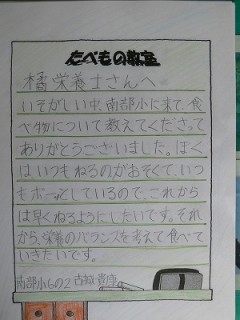 たべもの教室
橘栄養士さんへ
いそがしい中、南部小に来て、食
べ物について教えてくださって
ありがとうございました。ぼく
はいつもねるのがおそくて、いつ
もボーッとしているので、これから
は早くねるようにしたいです。それ
から、栄養のバランスを考えて食べて
いきたいです。
南部小6の2